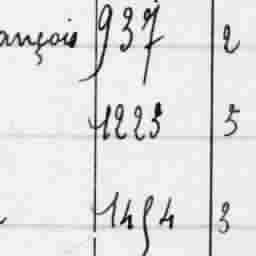 ançois 937 2
1223 5
1454 3